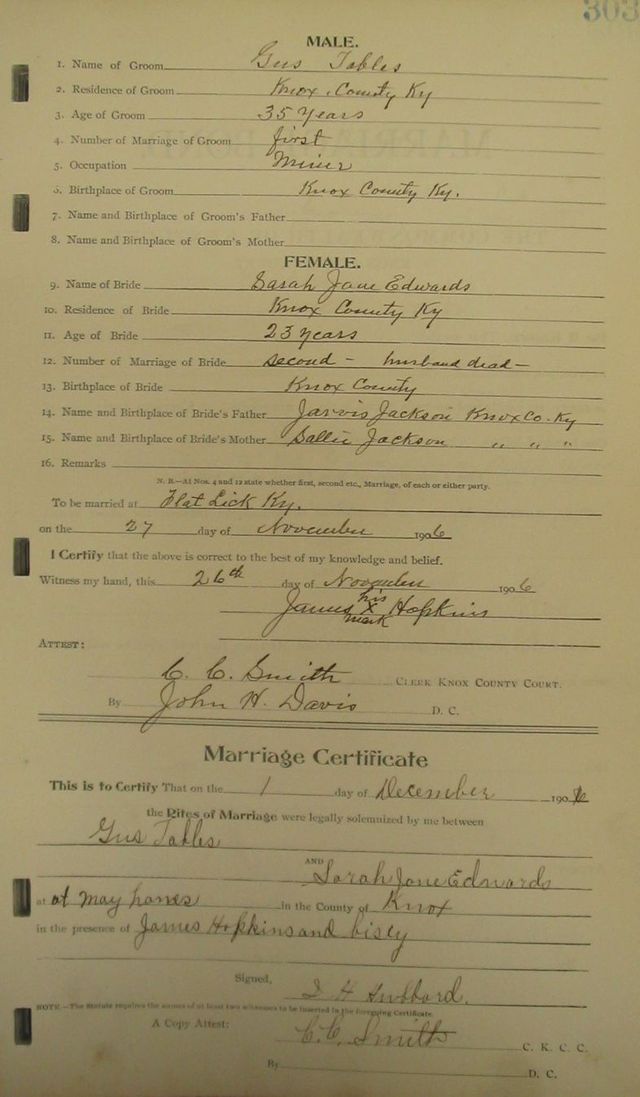 303
MALE.
1. Name of Groom Gus Tables
2. Residence of Groom Knox County Ky
3. Age of Groom 35 years
4. Number of Marriage of Groom first
5. Occupation Miner
6. Birthplace of Groom Knox County Ky.
7. Name and Birthplace of Groom's Father
8. Name and Birthplace of Groom's Mother
FEMALE.
9. Name of Bride Sarah Jane Edwards
10. Residence of Bride Knox County Ky
11. Age of Bride 23 years
12. Number of Marriage of Bride second - husband dead -
13. Birthplace of Bride Knox County
14. Name and Birthplace of Bride's Father Jarvis Jackson Knox Co. Ky
15. Name and Birthplace of Bride's Mother Sallie Jackson " " "
16. Remarks
N. B.—At Nos. 4 and 12 state whether first, second etc., Marriage, of each or either party.
To be married at Flat Lick Ky.
on the 27 day of November 1906
I Certify that the above is correct to the best of my knowledge and belief.
Witness my hand, this 26th day of November 1906
his
James X Hopkins
mark
ATTEST:
C. C. Smith CLERK KNOX COUNTY COURT.
By John W. Davis D. C.
Marriage Certificate
This is to Certify That on the 1 day of December 1906
the Rites of Marriage were legally solemnized by me between
Gus Tables
AND
Sarah Jane Edwards
at at May in the County of Knox
in the presence of James Hopkins and
Signed,
Hubbard.
NOTE.—The Statute requires the names of at least two witnesses to be inserted in the foregoing Certificate.
A Copy Attest: C. C. Smith C. K. C. C.
By D. C.